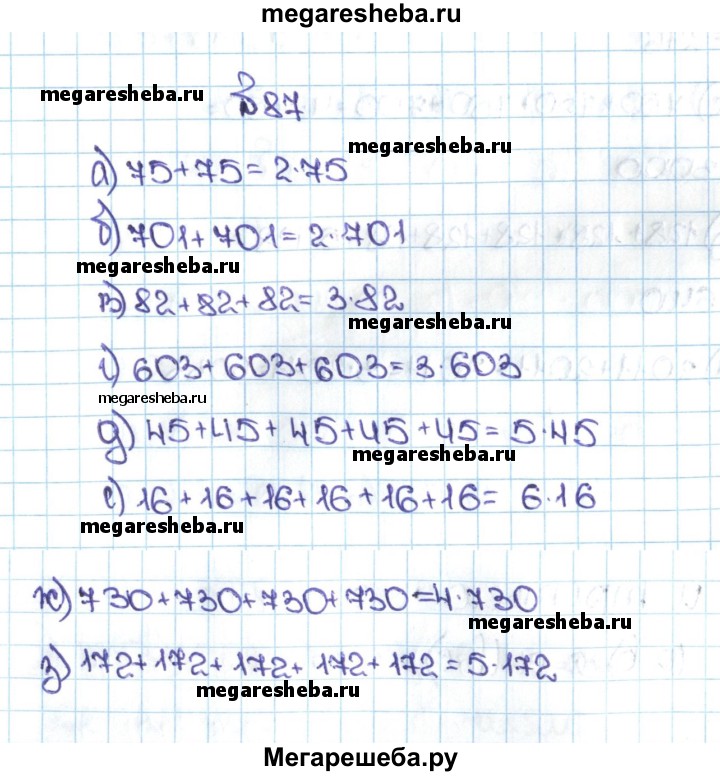 megaresheba.ru
megaresheba.ru
№87
megaresheba.ru
а) 75+75=2·75
б) 701+701=2·701
megaresheba.ru
в) 82+82+82=3·82
megaresheba.ru
г) 603+603+603=3·603
megaresheba.ru
д) 45+45+45+45+45=5·45
megaresheba.ru
е) 16+16+16+16+16+16=6·16
megaresheba.ru
ж) 730+730+730+730=4·730
megaresheba.ru
з) 172+172+172+172+172=5·172
megaresheba.ru
Мегарешеба.ру